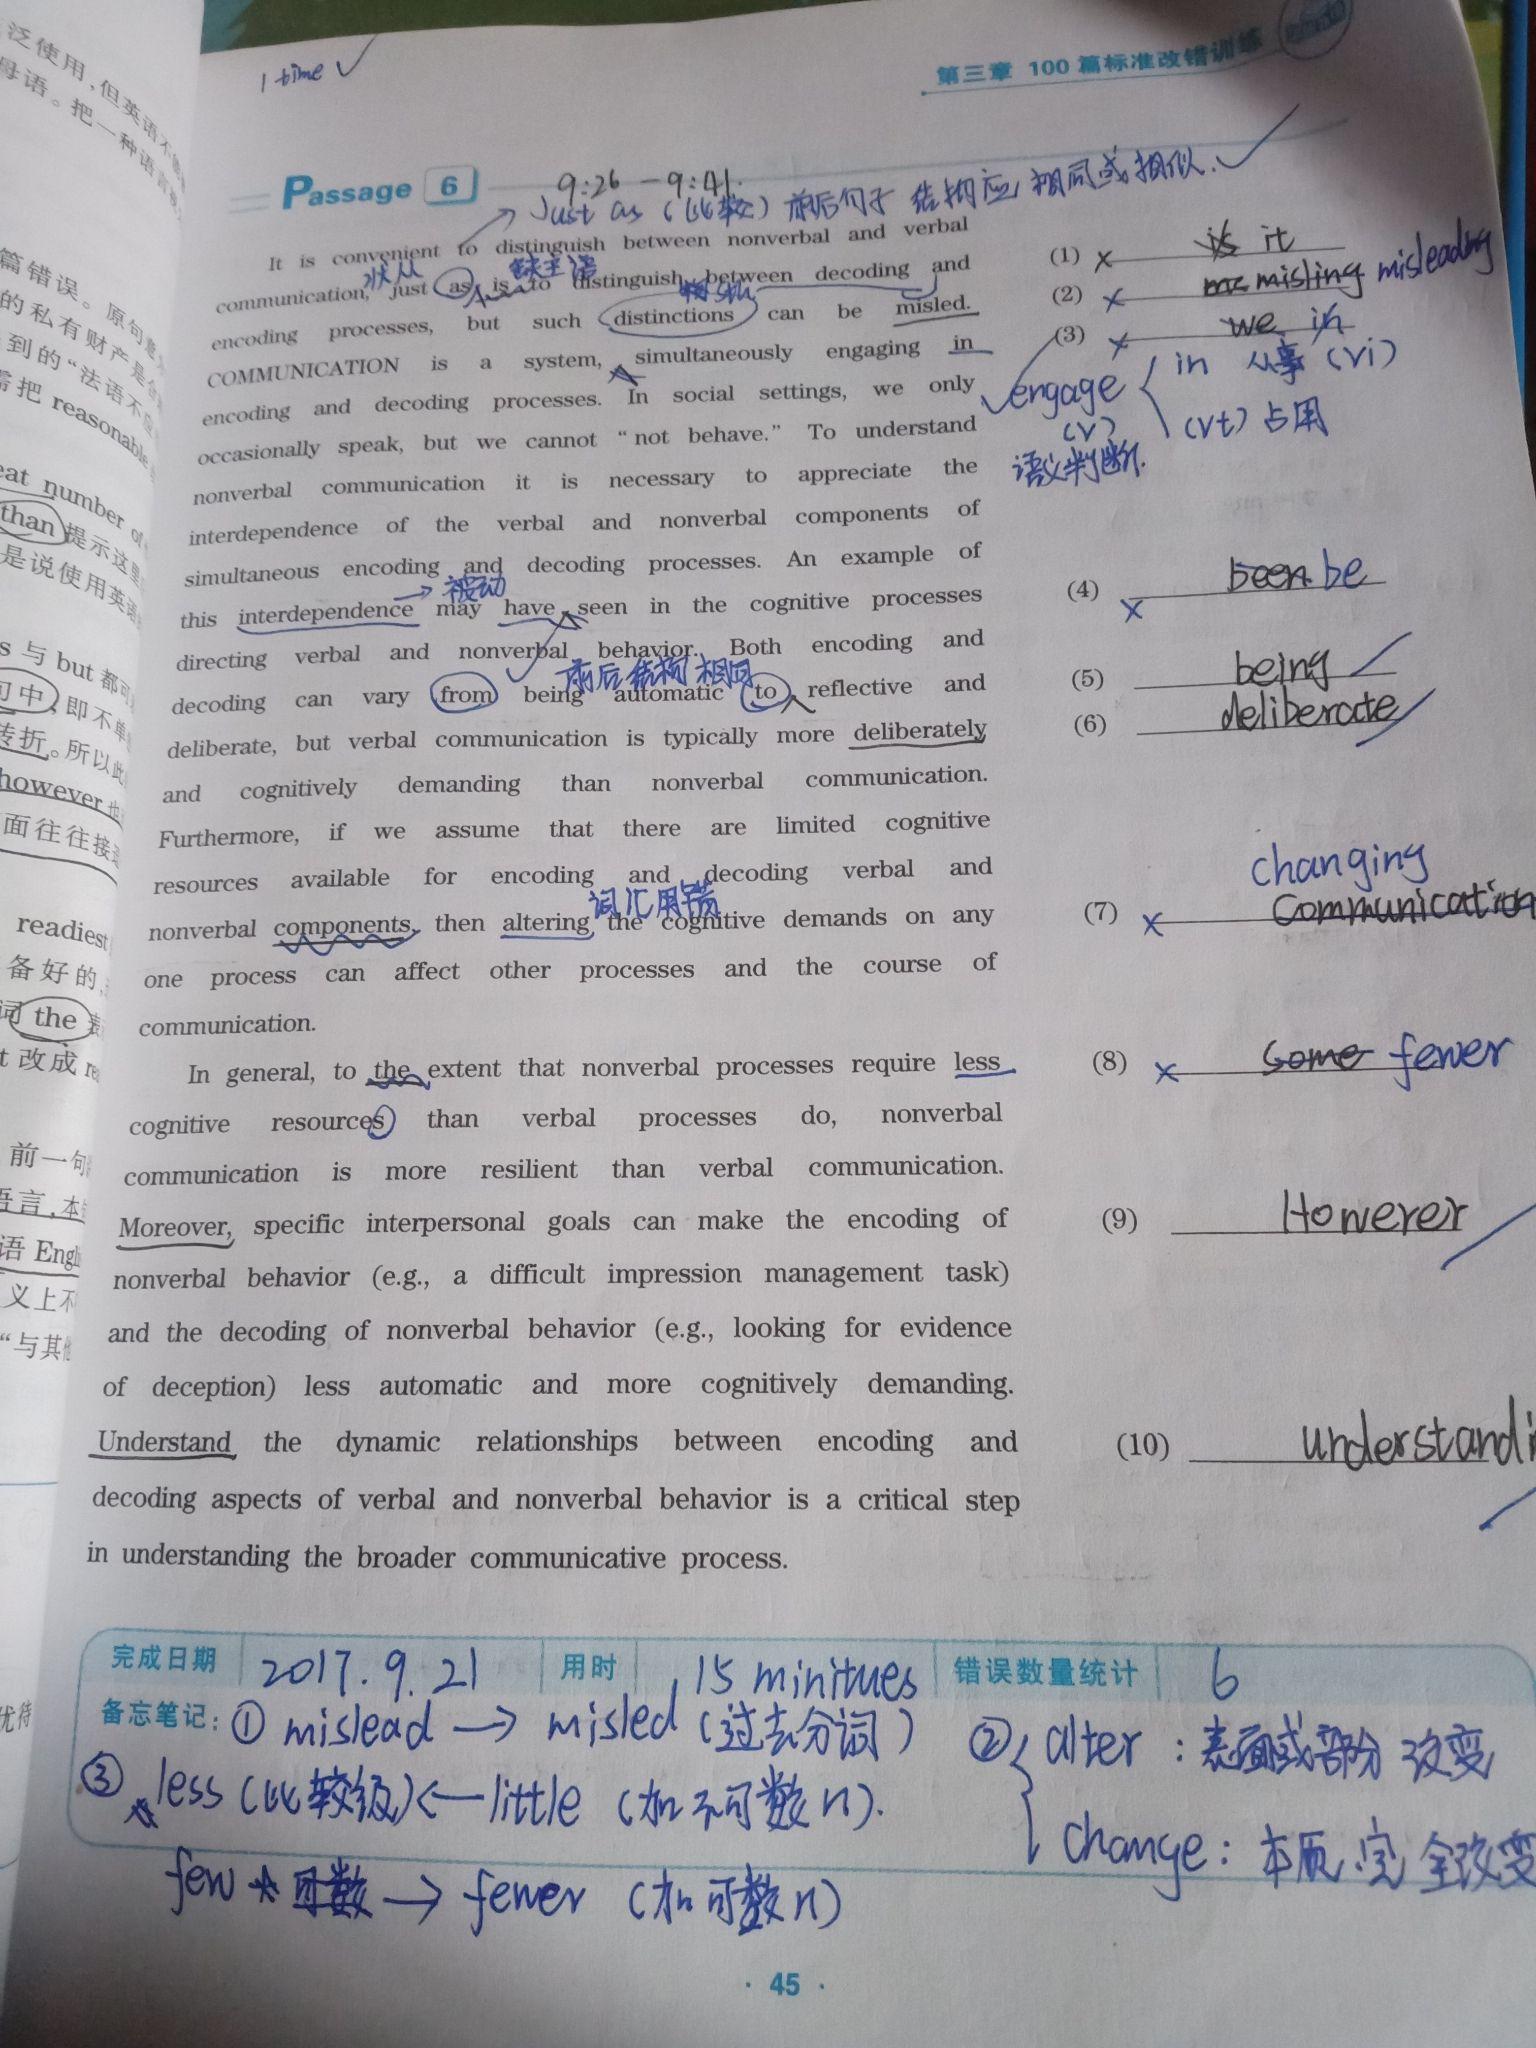 泛使用,但英语不
母语。把一种语言
篇错误。原句意
的私有财产是合
到的“法语不应
需把 reasonable
eat number of
than 提示这里
是说使用英语
s 与 but 都可
句中,即不单
转折。所以此
however 也
面往往接逗
readiest
备好的,
词 the 表
t 改成 re
前一句
语言,本
语 Engl
义上不
“与其他
优待
1 time ✓
第三章 100 篇标准改错训练
Passage 6
9:26 — 9:41.
Just as (比较) 前后句子 结构应 相同或相似.
It is convenient to distinguish between nonverbal and verbal
状从 缺主语
communication, just as is to distinguish between decoding and
encoding processes, but such distinctions can be misled.
COMMUNICATION is a system, simultaneously engaging in
encoding and decoding processes. In social settings, we only
occasionally speak, but we cannot “not behave.” To understand
nonverbal communication it is necessary to appreciate the
interdependence of the verbal and nonverbal components of
simultaneous encoding and decoding processes. An example of
→ 被动
this interdependence may have seen in the cognitive processes
directing verbal and nonverbal behavior. Both encoding and
前后结构相同
decoding can vary from being automatic to reflective and
deliberate, but verbal communication is typically more deliberately
and cognitively demanding than nonverbal communication.
Furthermore, if we assume that there are limited cognitive
resources available for encoding and decoding verbal and
词汇用错
nonverbal components, then altering the cognitive demands on any
one process can affect other processes and the course of
communication.
In general, to the extent that nonverbal processes require less
cognitive resources than verbal processes do, nonverbal
communication is more resilient than verbal communication.
Moreover, specific interpersonal goals can make the encoding of
nonverbal behavior (e.g., a difficult impression management task)
and the decoding of nonverbal behavior (e.g., looking for evidence
of deception) less automatic and more cognitively demanding.
Understand the dynamic relationships between encoding and
decoding aspects of verbal and nonverbal behavior is a critical step
in understanding the broader communicative process.
(1) × is it
(2) × misling misleading
(3) × we in
engage { in 从事 (vi)
(v) (vt) 占用
语义判断.
(4) × been be
(5) being
(6) deliberate
changing
(7) × communication
(8) × some fewer
(9) However
(10) understandi
完成日期 2017.9.21 用时 15 minitues 错误数量统计 6
备忘笔记: ① mislead → misled (过去分词) ② { alter : 表面或部分 改变
③ less (比较级) ← little (加不可数 n).
change : 本质.完 全改变
few 可数 → fewer (加可数 n)
· 45 ·